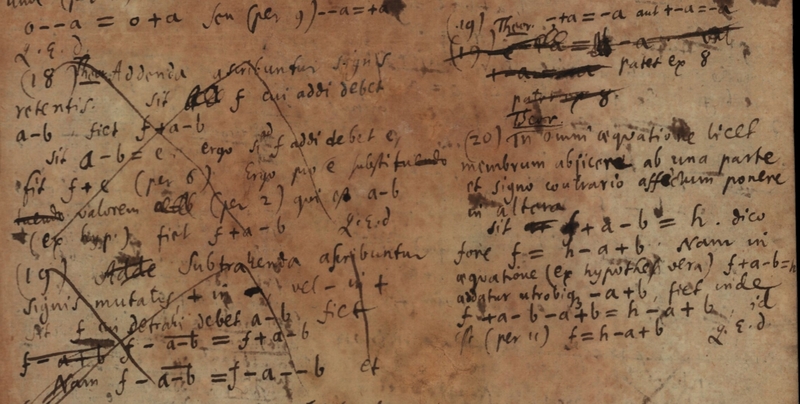 0--a = 0+a seu (per 9) --a=+a
Q.E.d.
(18) Theor. Addenda ascribuntur signis
retentis. Sit f cui addi debet
a-b fiet f+a-b
Sit a-b=e. ergo si f addi debet e,
fit f+e (per 6) Ergo pro e substituendo
valorem (per 2) qui est a-b
(ex hyp.) fiet f+a-b Q.E.d
(19) Subtrahenda ascribuntur
signis mutatis + in - vel - in +
Sit f cui detrahi debet a-b, fiet
f-a+b f - a-b = f+a-b
Nam f - a-b = f-a--b et
(19) Theor. -+a=-a aut +-a=-a
patet ex 8
patet ex 8.
Theor.
(20) In omni æquatione licet
membrum abjicere ab una parte
et signo contrario affectum ponere
in altera
Sit f+a-b = h. dico
fore f = h-a+b. Nam in
æquatione (ex hypothesi vera) f+a-b=h
addatur utrobiq; -a+b, fiet inde
f+a-b-a+b = h-a+b, id
est (per 11) f=h-a+b Q.E.d